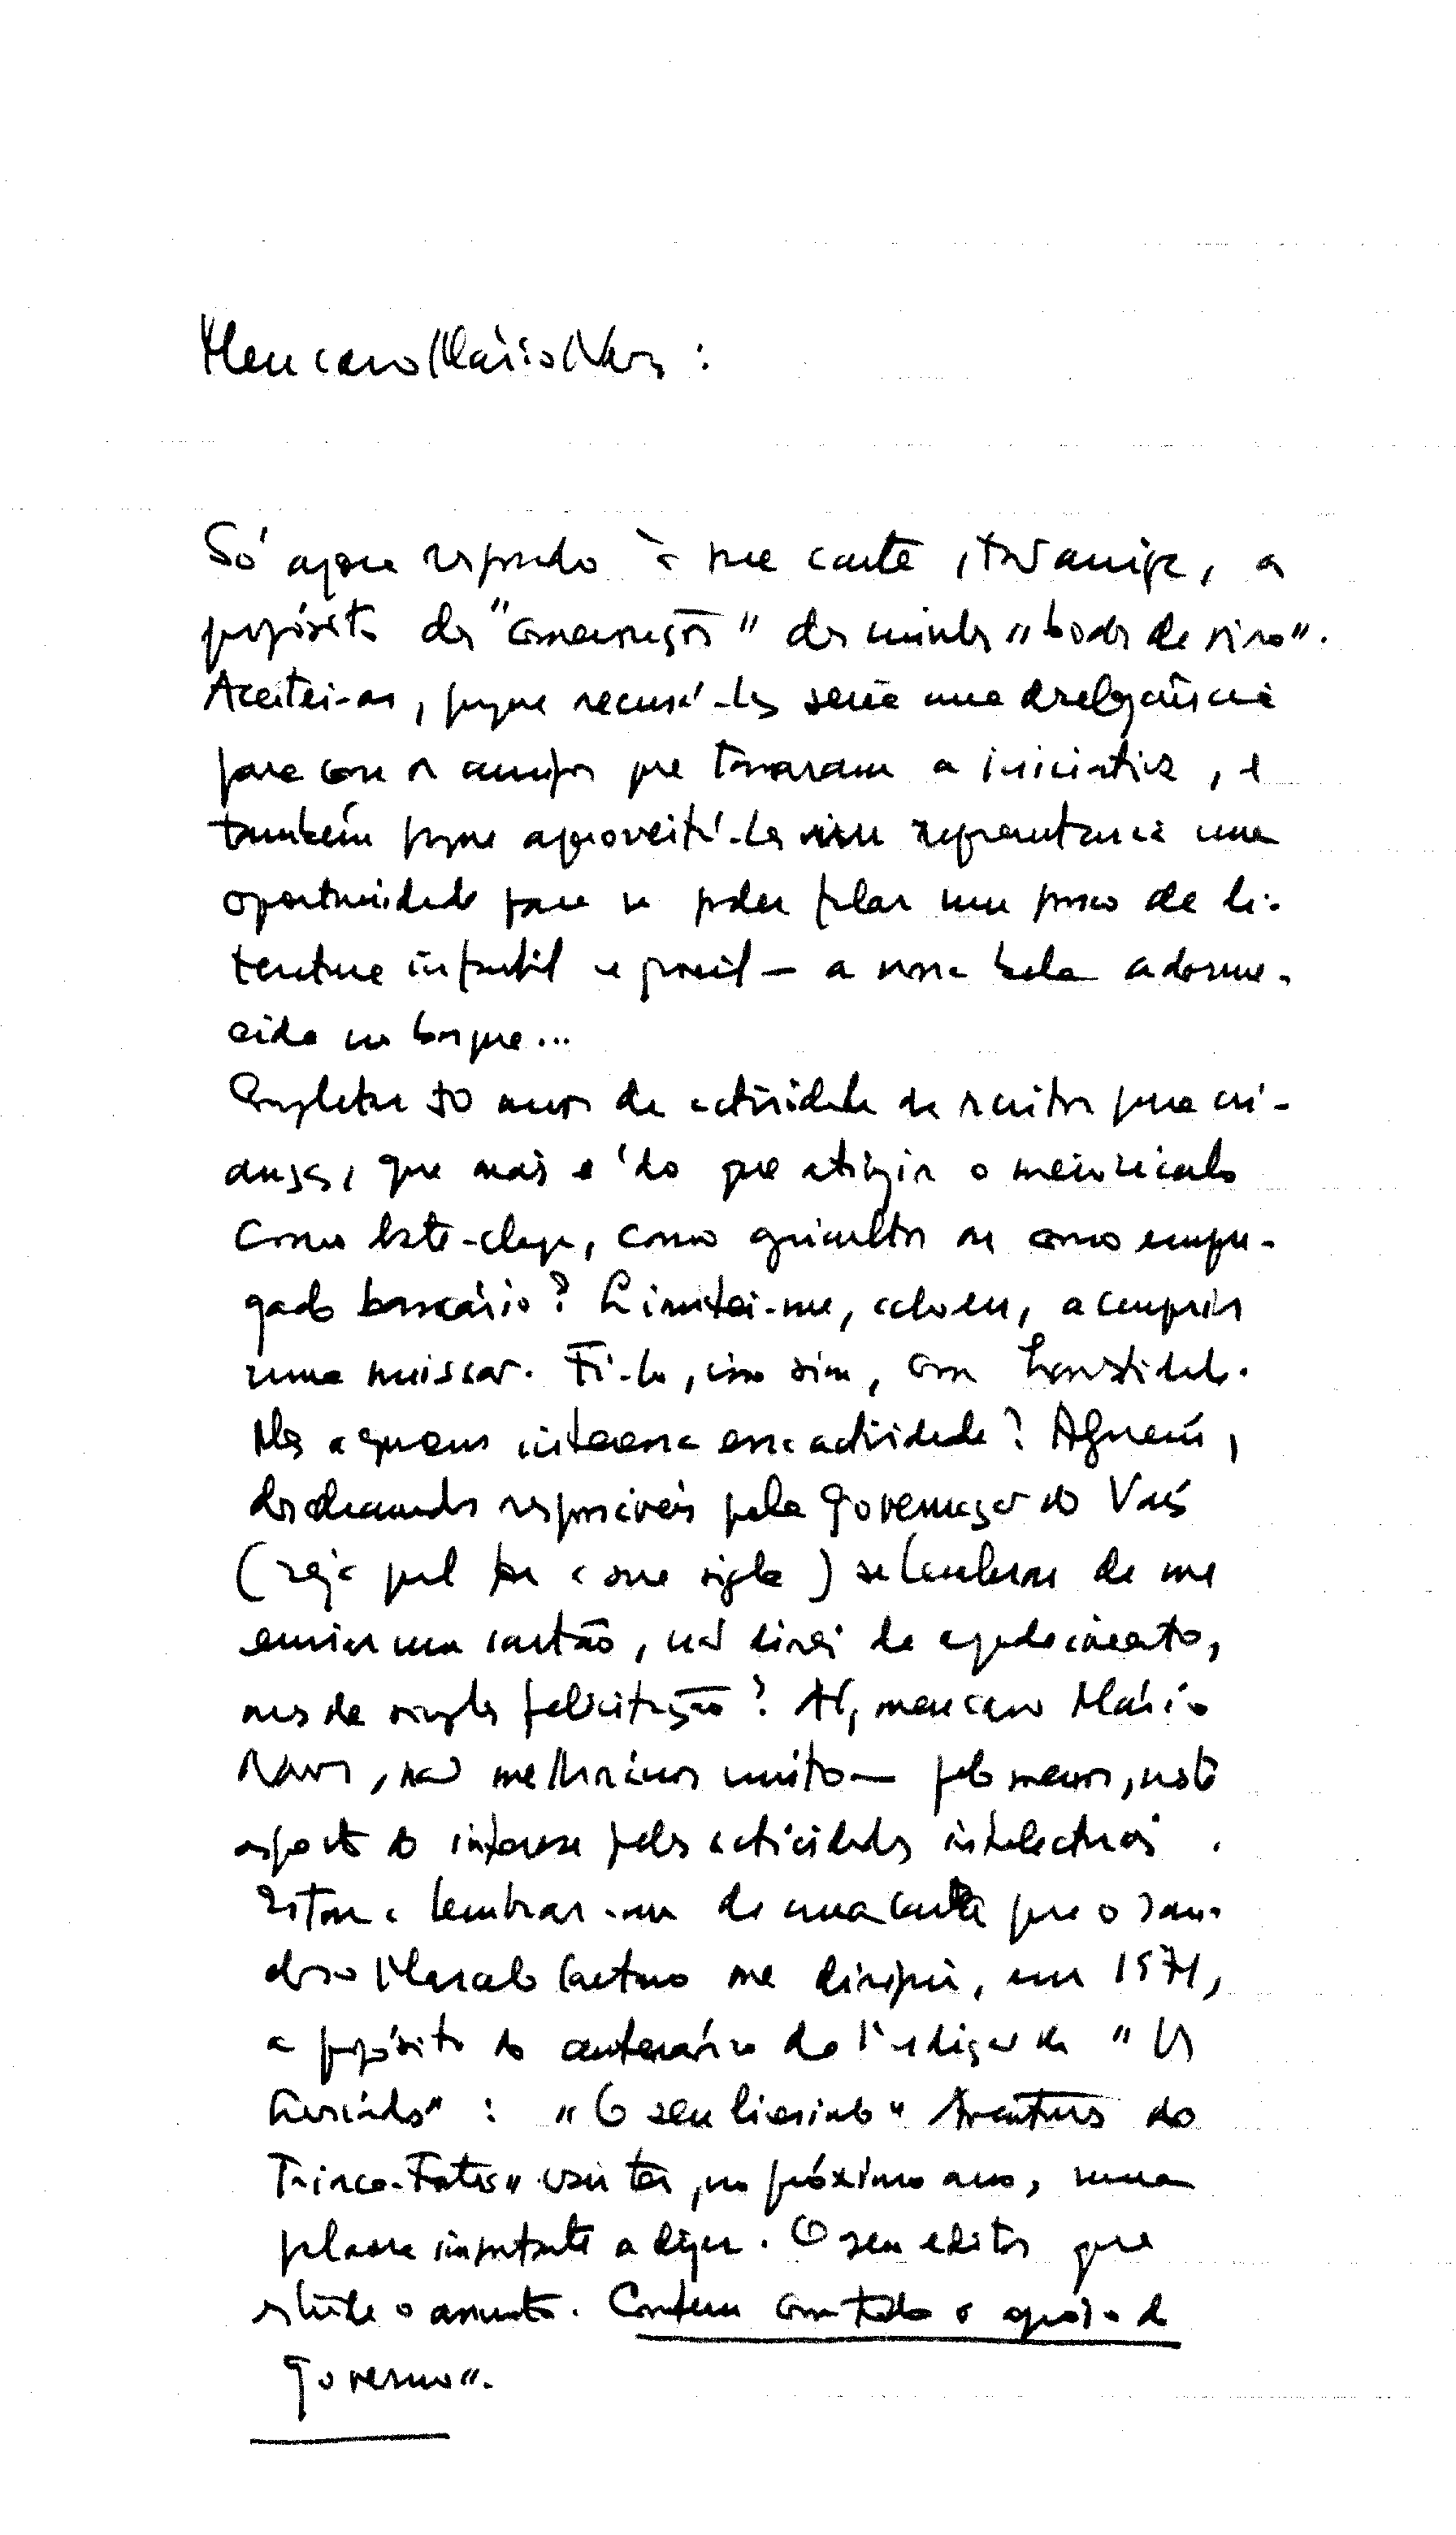 Meu caro Mário Neves:
Só agora respondo à sua carta, tão amiga, a
propósito das "comemorações" das minhas "bodas de ouro".
Aceitei-as, porque recusá-las seria uma deselegância
para com os amigos que tomaram a iniciativa, e
também porque aproveitá-las representaria uma
oportunidade para se poder falar um pouco de li-
teratura infantil e juvenil — a nossa bela adorme-
cida no bosque...
Completar 50 anos de actividade de escritor para cri-
anças, que mais é do que atingir o meio século
como bate-chapa, como agricultor ou como empre-
gado bancário? Limitei-me, acho eu, a cumprir
uma missão. Fi-lo, isso sim, com honestidade.
Mas a quem interessa essa actividade? Alguém,
dos chamados responsáveis pela governação do País
(seja qual for a sua sigla) se lembrou de me
enviar um cartão, não direi de agradecimento,
mas de simples felicitação? Ah, meu caro Mário
Neves, não melhorámos muito — pelo menos, neste
aspecto do interesse pelas actividades intelectuais.
Estou a lembrar-me de uma carta que o sau-
doso Marcelo Caetano me dirigiu, em 1971,
a propósito do centenário da 1ª edição de "Os
Lusíadas": "O seu livrinho "Aventuras do
Trinca-Fortes" vai ter, no próximo ano, uma
palavra importante a dizer. O seu editor que
estude o assunto. Contem com todo o apoio do
Governo".